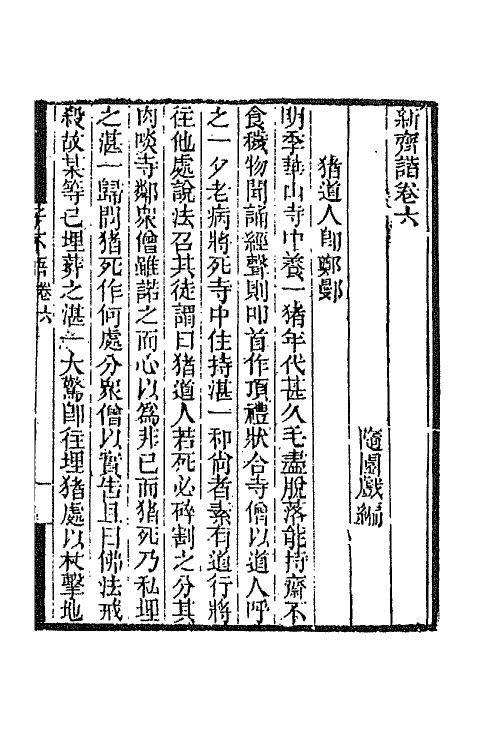 新齊諧卷六
隨園戲編
猪道人即鄭鄤
明季華山寺中養一猪年代甚久毛盡脫落能持齋不
食穢物聞誦經聲則叩首作頂禮狀合寺僧以道人呼
之一夕老病將死寺中住持湛一和尚者素有道行將
往他處說法召其徒謂曰猪道人若死必碎割之分其
肉啖寺鄰衆僧雖諾之而心以為非已而猪死乃私埋
之湛一歸問猪死作何處分衆僧以實告且曰佛法戒
殺故某等已埋葬之湛一大驚即往埋猪處以杖擊地
子不語卷六